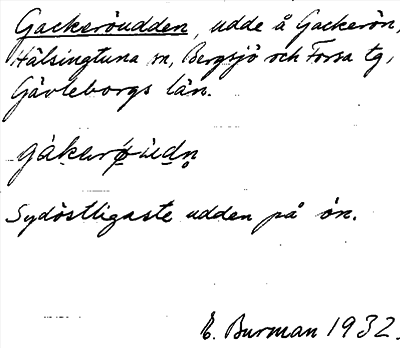 Gackeröudden, udde å Gackerön,
Hälsingtuna sn, Bergsjö och Forsa tg,
Gävleborgs län.
Sydöstligaste udden på ön.
E. Burman 1932.